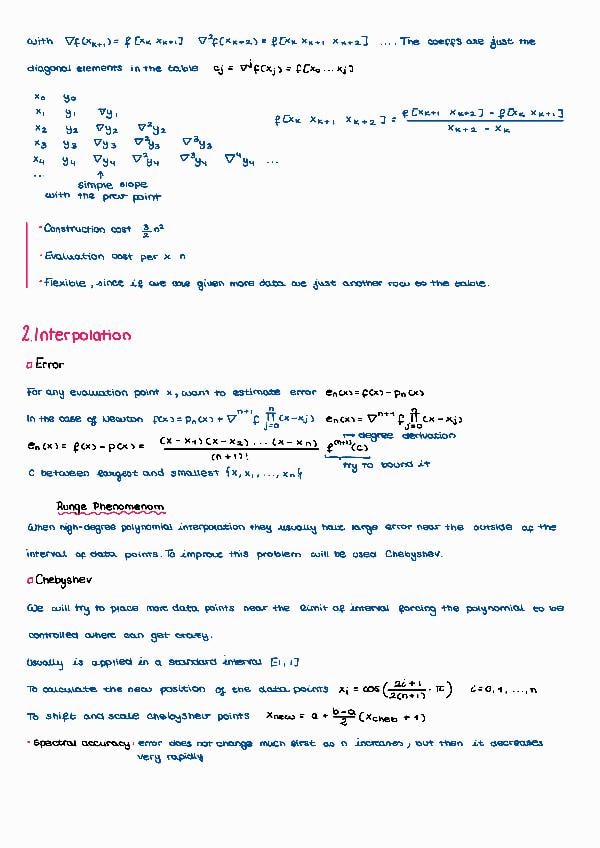 with ∇f(xₖ₊₁) = f[xₖ xₖ₊₁] ∇²f(xₖ₊₂) = f[xₖ xₖ₊₁ xₖ₊₂] .... The coeffs are just the
diagonal elements in the table cj = ∇ʲf(xj) = f[x₀...xj]
x₀ y₀
x₁ y₁ ∇y₁
x₂ y₂ ∇y₂ ∇²y₂
x₃ y₃ ∇y₃ ∇²y₃ ∇³y₃
x₄ y₄ ∇y₄ ∇²y₄ ∇³y₄ ∇⁴y₄ ...
...
f[xₖ xₖ₊₁ xₖ₊₂] = (f[xₖ₊₁ xₖ₊₂] - f[xₖ xₖ₊₁]) / (xₖ₊₂ - xₖ)
↑
simple slope
with the prev point
· Construction cost 3/2 n²
· Evaluation cost per x n
· Flexible, since if we are given more data we just another row to the table.
2. Interpolation
Error
For any evaluation point x, want to estimate error eₙ(x) = f(x) - pₙ(x)
In the case of Newton f(x) = pₙ(x) + ∇ⁿ⁺¹ f ∏ⁿj=0 (x-xj) eₙ(x) = ∇ⁿ⁺¹ f ∏ⁿj=0 (x-xj)
→ degree derivation
eₙ(x) = f(x) - p(x) = ((x-x₁)(x-x₂)...(x-xₙ)) / (n+1)! f⁽ⁿ⁺¹⁾(c)
try to bound it
C between largest and smallest {x, x₁, ..., xₙ}
Runge Phenomenom
When high-degree polynomial interpolation they usually have large error near the outside of the
interval of data points. To improve this problem will be used Chebyshev.
Chebyshev
We will try to place more data points near the limit of interval forcing the polynomial to be
controlled where can get crazy.
Usually is applied in a standard interval [1,1]
To calculate the new position of the data points xᵢ = cos((2i+1)/(2(n+1)) · π) i=0,1,...,n
To shift and scale chebyshev points xnew = a + (b-a)/2 (xcheb + 1)
· Spectral accuracy: error does not change much first as n increases, but then it decreases
very rapidly